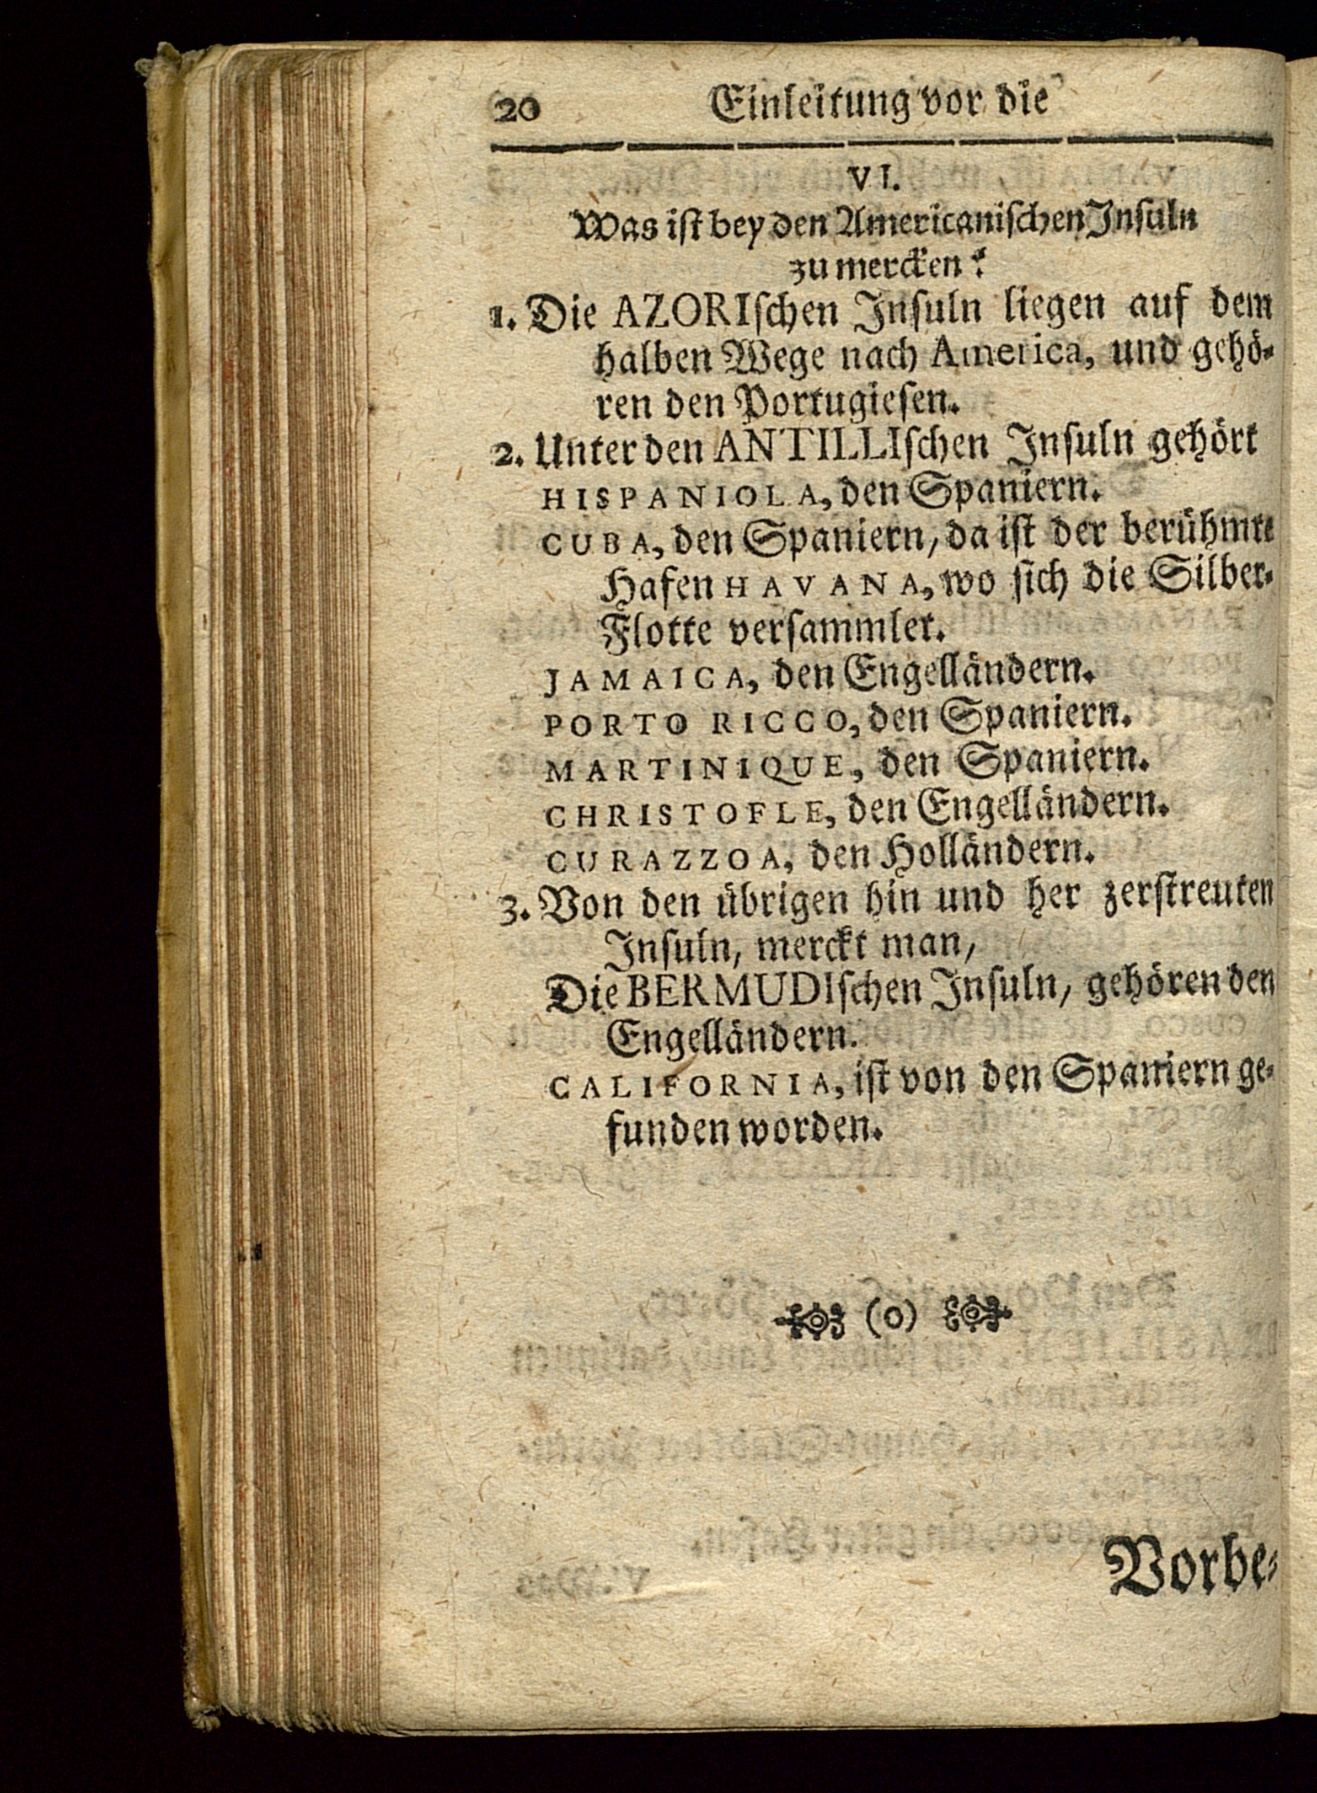 20 Einleitung vor die
VI.
Was ist bey den Americanischen Insuln
zu mercken?
1. Die AZORIschen Insuln liegen auf dem
halben Wege nach America, und gehö-
ren den Portugiesen.
2. Unter den ANTILLIschen Insuln gehört
HISPANIOLA, den Spaniern.
CUBA, den Spaniern, da ist der berühmte
Hafen HAVANA, wo sich die Silber-
Flotte versammlet.
JAMAICA, den Engelländern.
PORTO RICCO, den Spaniern.
MARTINIQUE, den Spaniern.
CHRISTOFLE, den Engelländern.
CURAZZOA, den Holländern.
3. Von den übrigen hin und her zerstreuten
Insuln, merckt man,
Die BERMUDIschen Insuln, gehören den
Engelländern.
CALIFORNIA, ist von den Spaniern ge-
funden worden.
(o)
Vorbe-